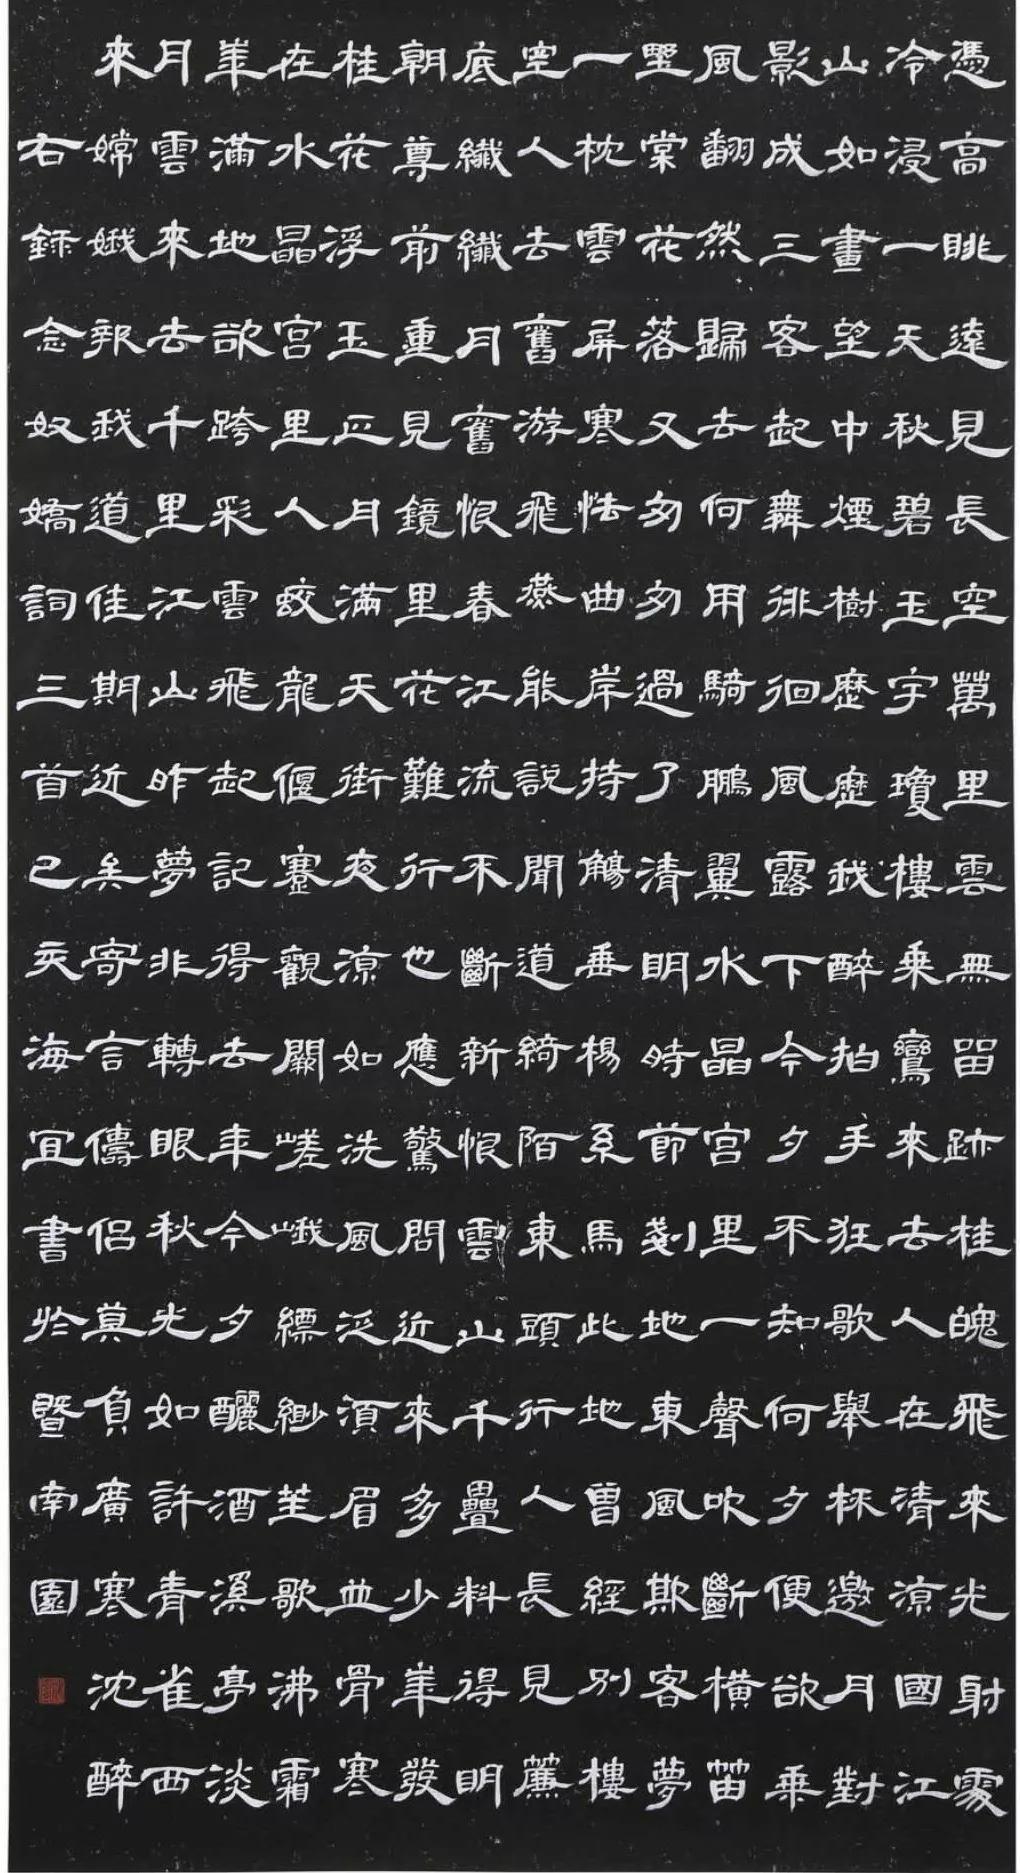 憑高眺遠見長空萬里雲無留跡桂魄飛來光射處
冷浸一天秋碧玉宇瓊樓乘鸞來去人在清涼國江
山如畫望中煙樹歷歷我醉拍手狂歌舉杯邀月對
影成三客起舞徘徊風露下今夕不知何夕便欲乘
風翻然歸去何用騎鵬翼水晶宮里一聲吹斷橫笛
野棠花落又匆匆過了清明時節剗地東風欺客夢
一枕雲屏寒怯曲岸持觴垂楊系馬此地曾經別樓
空人去舊游飛燕能說聞道綺陌東頭行人長見簾
底纖纖月舊恨春江流不斷新恨雲山千疊料得明
朝尊前重見鏡里花難行也應驚問近來多少華發
桂花浮玉正月滿天街夜涼如洗風泛須眉並骨寒
在水晶宮里人蛟龍偃蹇觀闕嵯峨縹緲笙歌沸霜
華滿地欲跨彩雲飛起記得去年今夕釃酒溪亭淡
月雲來去千里江山昨夢非轉眼秋光如許青雀西
來嫦娥報我道佳期近矣寄言儔侶莫負廣寒沈醉
右錄念奴嬌詞三首己亥海宜書於暨南園